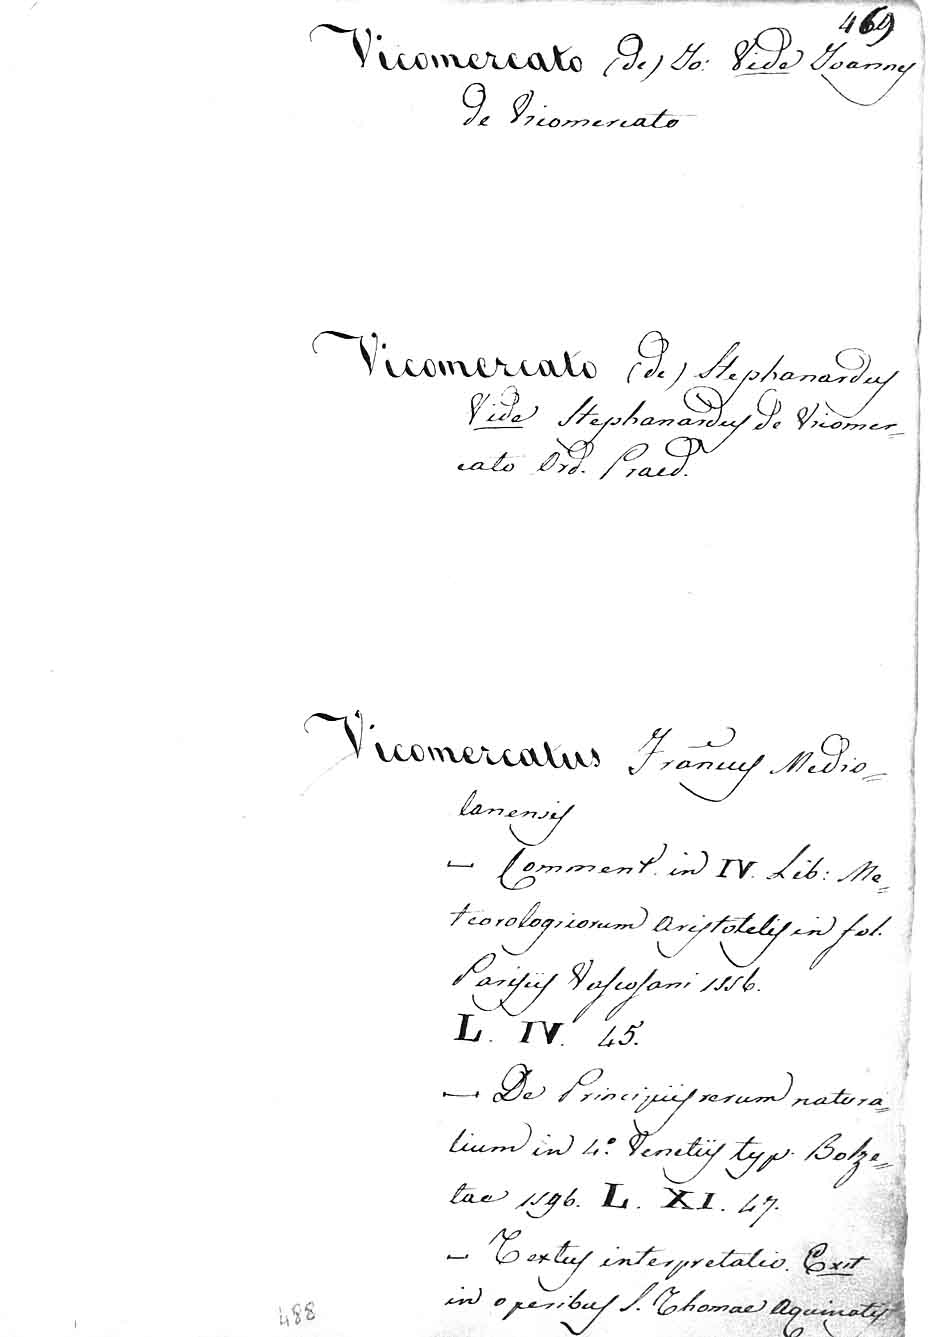 469
Vicomercato (de) Jo: Vide Joannes
de Vicomercato
Vicomercato (de) Stephanardus
Vide Stephanardus de Vicomer=
cato Ord. Praed.
Vicomercatus Francus Medio=
lanensis
— Comment. in IV. Lib: Me=
teorologicorum Aristotelis in fol.
Parisiis Vascosani 1556.
L. IV. 45.
— De Principiis rerum natura=
lium in 4.° Venetiis typ. Bolze=
tae 1596. L. XI. 47.
— Textus interpretatio. Exit
in operibus S. Thomae Aquinatis
488